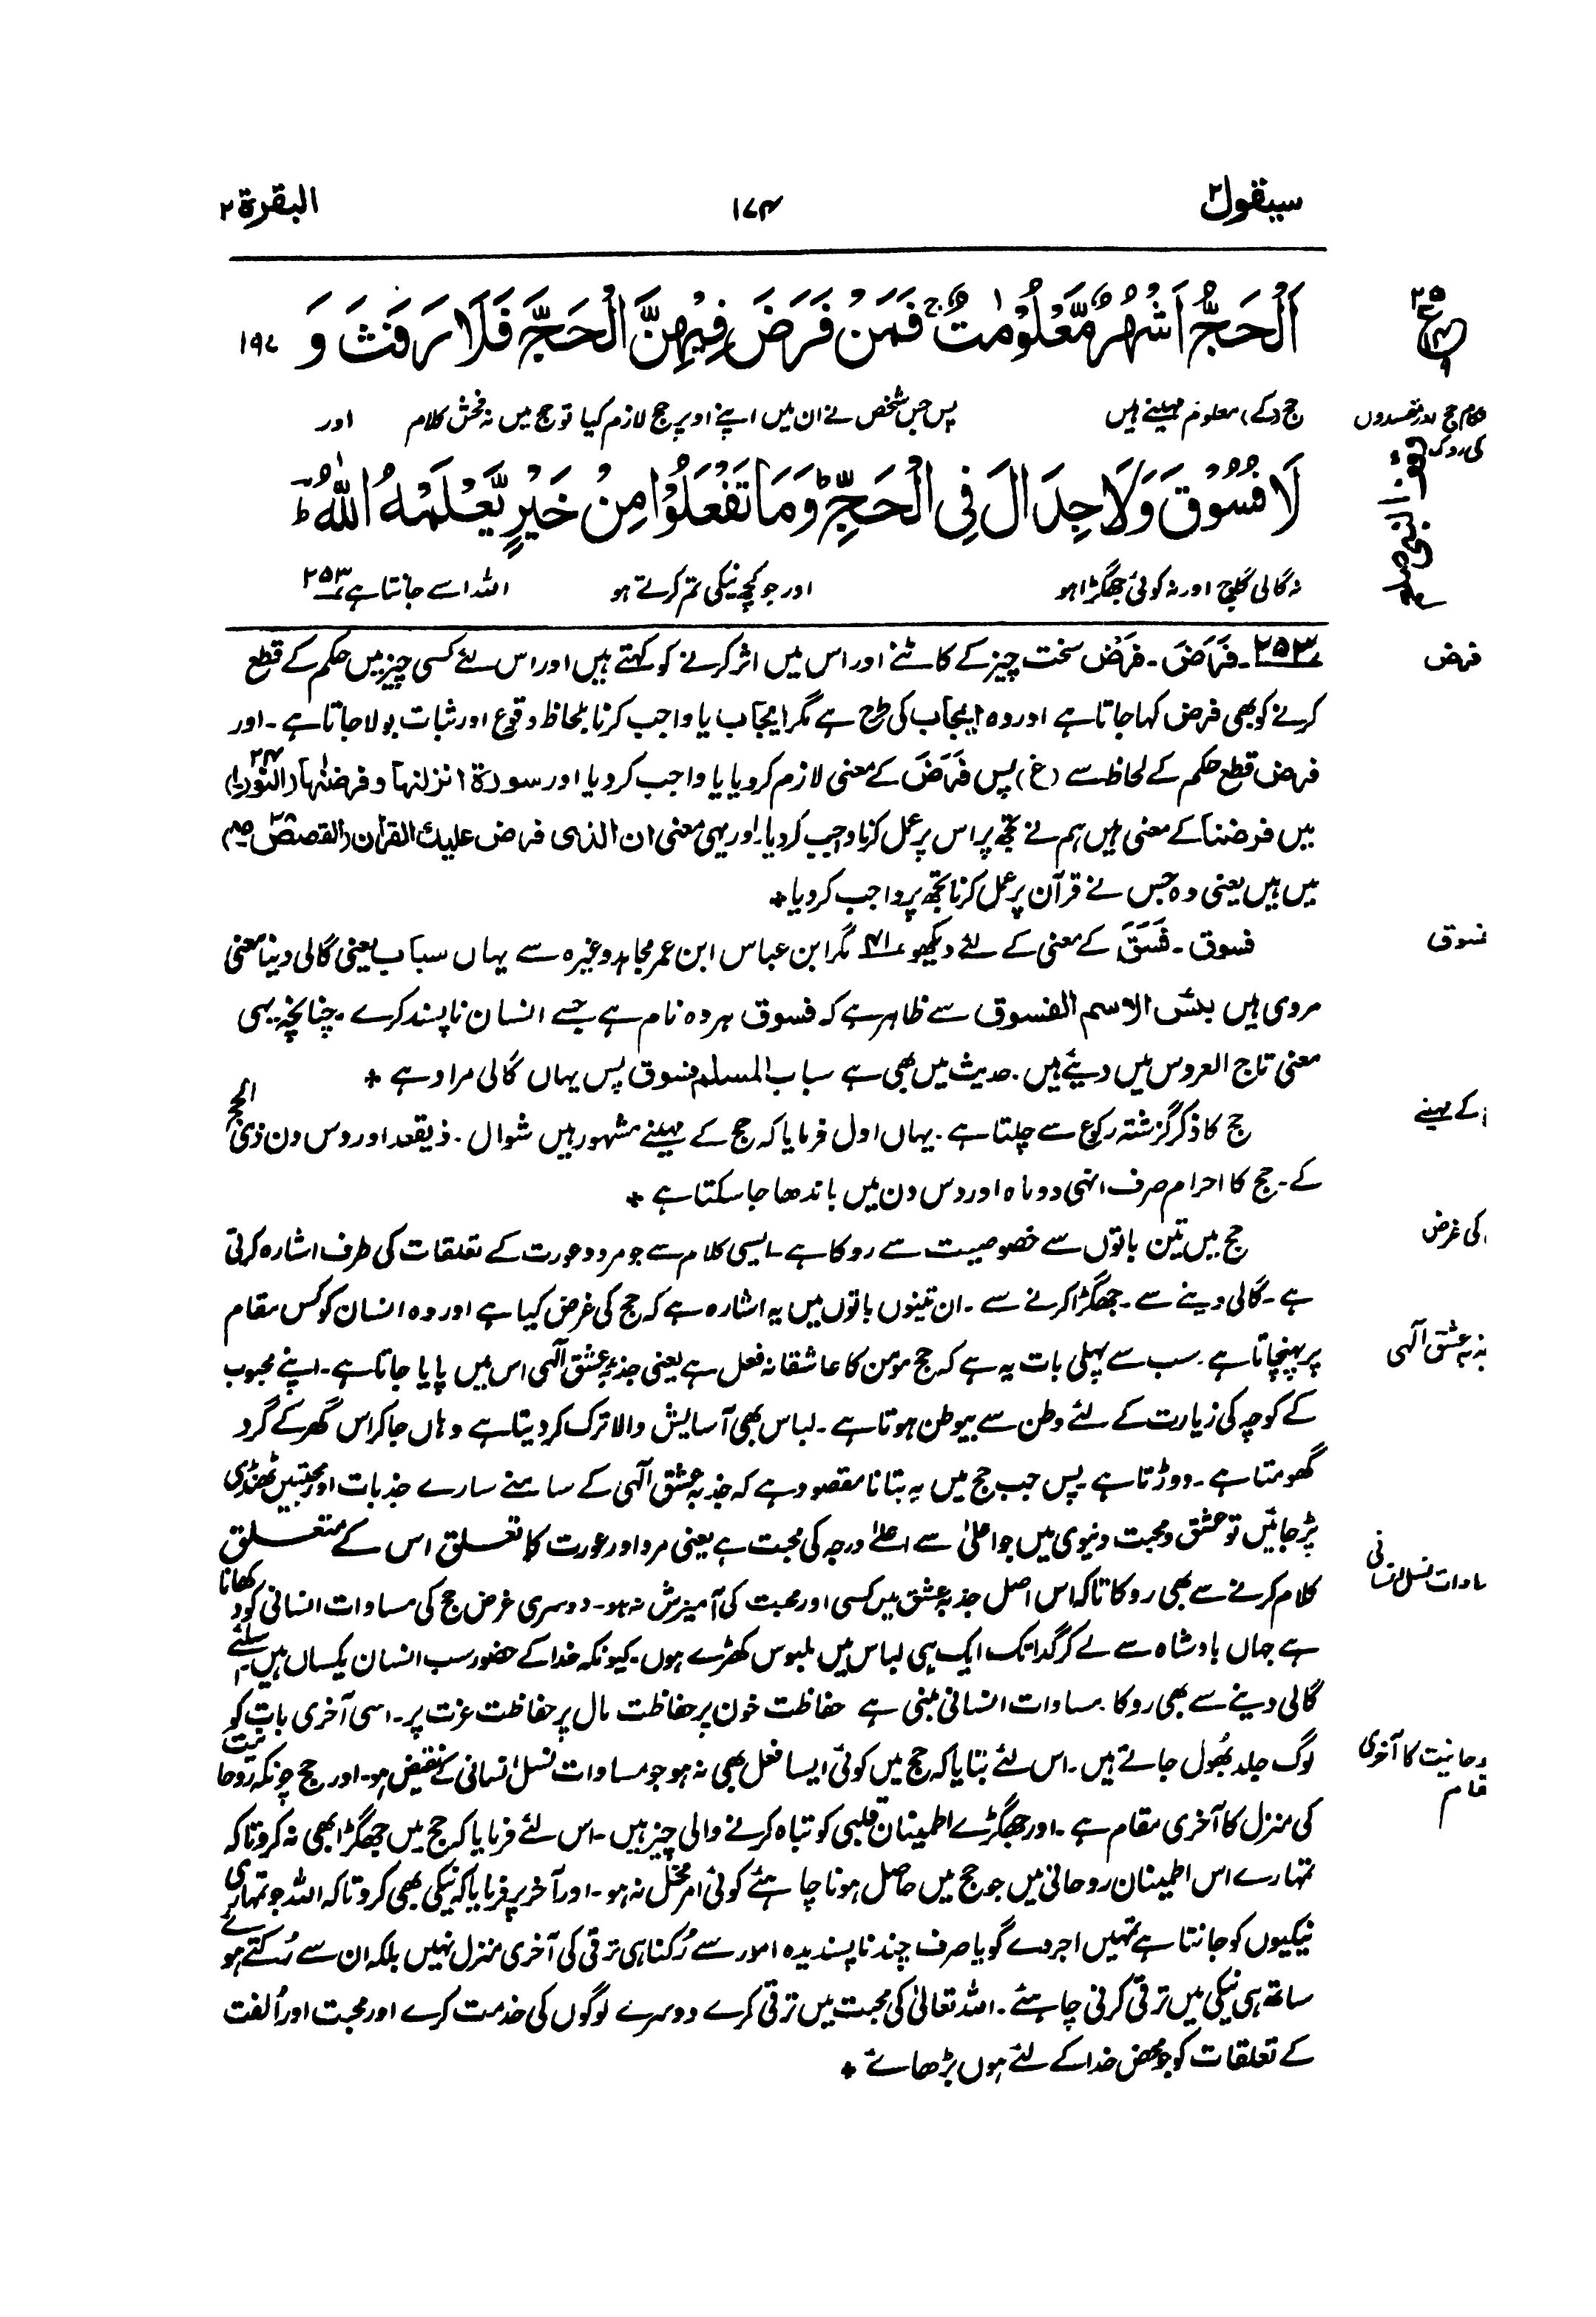 سیقول ۲
۱۷۴
البقرة ۲
اَلْحَجُّ اَشْهُرٌ مَّعْلُوْمٰتٌ ۚ فَمَنْ فَرَضَ فِيْهِنَّ الْحَجَّ فَلَا رَفَثَ وَ ۱۹۷
حج (کے) معلوم مہینے ہیں پس جس شخص نے ان میں اپنے اوپر حج لازم کیا تو حج میں نہ فحش کلام اور
لَا فُسُوْقَ وَلَا جِدَالَ فِي الْحَجِّ ؕ وَمَا تَفْعَلُوْا مِنْ خَيْرٍ يَّعْلَمْهُ اللّٰهُ ؕ
نہ گالی گلوچ اور نہ کوئی جھگڑا ہو اور جو کچھ نیکی تم کرتے ہو اللہ اسے جانتا ہے ۲۵۳
فرض
۲۵۳۔ فَرَضَ۔ فَرْض سخت چیز کے کاٹنے اور اس میں اثر کرنے کو کہتے ہیں اور اس لئے کسی چیز میں حکم کے قطع
کرنے کو بھی فرض کہا جاتا ہے اور وہ ایجاب کی طرح ہے مگر ایجاب یا واجب کرنا بلحاظ وقوع اور ثبات بولا جاتا ہے۔ اور
فرض قطع حکم کے لحاظ سے (غ) پس فَرَضَ کے معنی لازم کر دیا یا واجب کر دیا اور سورة انزلنها و فرضنٰها (النور ۲۴۔۱)
میں فرضنا کے معنی ہیں ہم نے تجھ پر اس پر عمل کرنا واجب کر دیا۔ اور یہی معنی ان الذی فرض علیك القرآن (القصص ۲۸۔۸۵)
میں ہیں یعنی وہ جس نے قرآن پر عمل کرنا تجھ پر واجب کر دیا *
فسوق
فسوق۔ فَسَقَ کے معنی کے لئے دیکھو ۴۱ مگر ابن عباس ابن عمر مجاہد وغیرہ سے یہاں سباب یعنی گالی دینا معنی
مروی ہیں بئس الاسم الفسوق سے ظاہر ہے کہ فسوق ہر وہ نام ہے جسے انسان ناپسند کرے۔ چنانچہ یہی
معنی تاج العروس میں دیئے ہیں۔ حدیث میں بھی ہے سباب المسلم فسوق پس یہاں گالی مراد ہے *
کے مہینے
حج کا ذکر گزشتہ رکوع سے چلتا ہے۔ یہاں اول فرمایا کہ حج کے مہینے مشہور ہیں شوال۔ ذیقعد اور دس دن ذی الحج
کے۔ حج کا احرام صرف انہی دو ماہ اور دس دن میں باندھا جا سکتا ہے *
کی غرض
حج میں تین باتوں سے خصوصیت سے روکا ہے۔ ایسی کلام سے جو مرد و عورت کے تعلقات کی طرف اشارہ کرتی
ہے۔ گالی دینے سے۔ جھگڑا کرنے سے۔ ان تینوں باتوں میں یہ اشارہ ہے کہ حج کی غرض کیا ہے اور وہ انسان کو کس مقام
بہ عشق الٰہی
پر پہنچاتا ہے۔ سب سے پہلی بات یہ ہے کہ حج مومن کا عاشقانہ فعل ہے یعنی جذبہ عشق الٰہی اس میں پایا جاتا ہے۔ اپنے محبوب
کے کوچہ کی زیارت کے لئے وطن سے بیوطن ہوتا ہے۔ لباس بھی آسایش والا ترک کر دیتا ہے وہاں جا کر اس گھر کے گرد
گھومتا ہے۔ دوڑتا ہے۔ پس جب حج میں یہ بتانا مقصود ہے کہ جذبہ عشق الٰہی کے سامنے سارے جذبات اور محبتیں ٹھنڈی
پڑ جائیں تو عشق و محبت دنیوی میں جو اعلیٰ سے اعلےٰ درجہ کی محبت ہے یعنی مرد اور عورت کا تعلق اس کے متعلق
کلام کرنے سے بھی روکا تاکہ اس اصل جذبہ عشق میں کسی اور محبت کی آمیزش نہ ہو۔ دوسری غرض حج کی مساوات انسانی کو دکھانا
ہے جہاں بادشاہ سے لے کر گدا تک ایک ہی لباس میں ملبوس کھڑے ہوں۔ کیونکہ خدا کے حضور سب انسان یکساں ہیں۔
گالی دینے سے بھی روکا۔ مساوات انسانی مبنی ہے حفاظت خون پر حفاظت مال پر حفاظت عزت پر۔ اسی آخری بات کو
وحانیت کا آخری
لوگ جلد بھول جاتے ہیں۔ اس لئے بتایا کہ حج میں کوئی ایسا فعل بھی نہ ہو جو مساوات نسل انسانی کے نقیض ہو۔ اور حج چونکہ روحانیت
کی منزل کا آخری مقام ہے۔ اور جھگڑے اطمینان قلبی کو تباہ کرنے والی چیز ہیں۔ اس لئے فرمایا کہ حج میں جھگڑا بھی نہ کرو تاکہ
تمہارے اس اطمینان روحانی میں جو حج میں حاصل ہونا چاہئے کوئی امر مخل نہ ہو۔ اور آخر پر فرمایا کہ نیکی بھی کرو تاکہ اللہ جو تمہاری
نیکیوں کو جانتا ہے تمہیں اجر دے گویا صرف چند ناپسندیدہ امور سے رُکنا ہی ترقی کی آخری منزل نہیں بلکہ ان سے رُکتے ہوئے
ساتھ ہی نیکی میں ترقی کرنی چاہئے۔ اللہ تعالیٰ کی محبت میں ترقی کرے دوسرے لوگوں کی خدمت کرے اور محبت اور اُلفت
کے تعلقات کو جو محض خدا کے لئے ہوں بڑھائے *